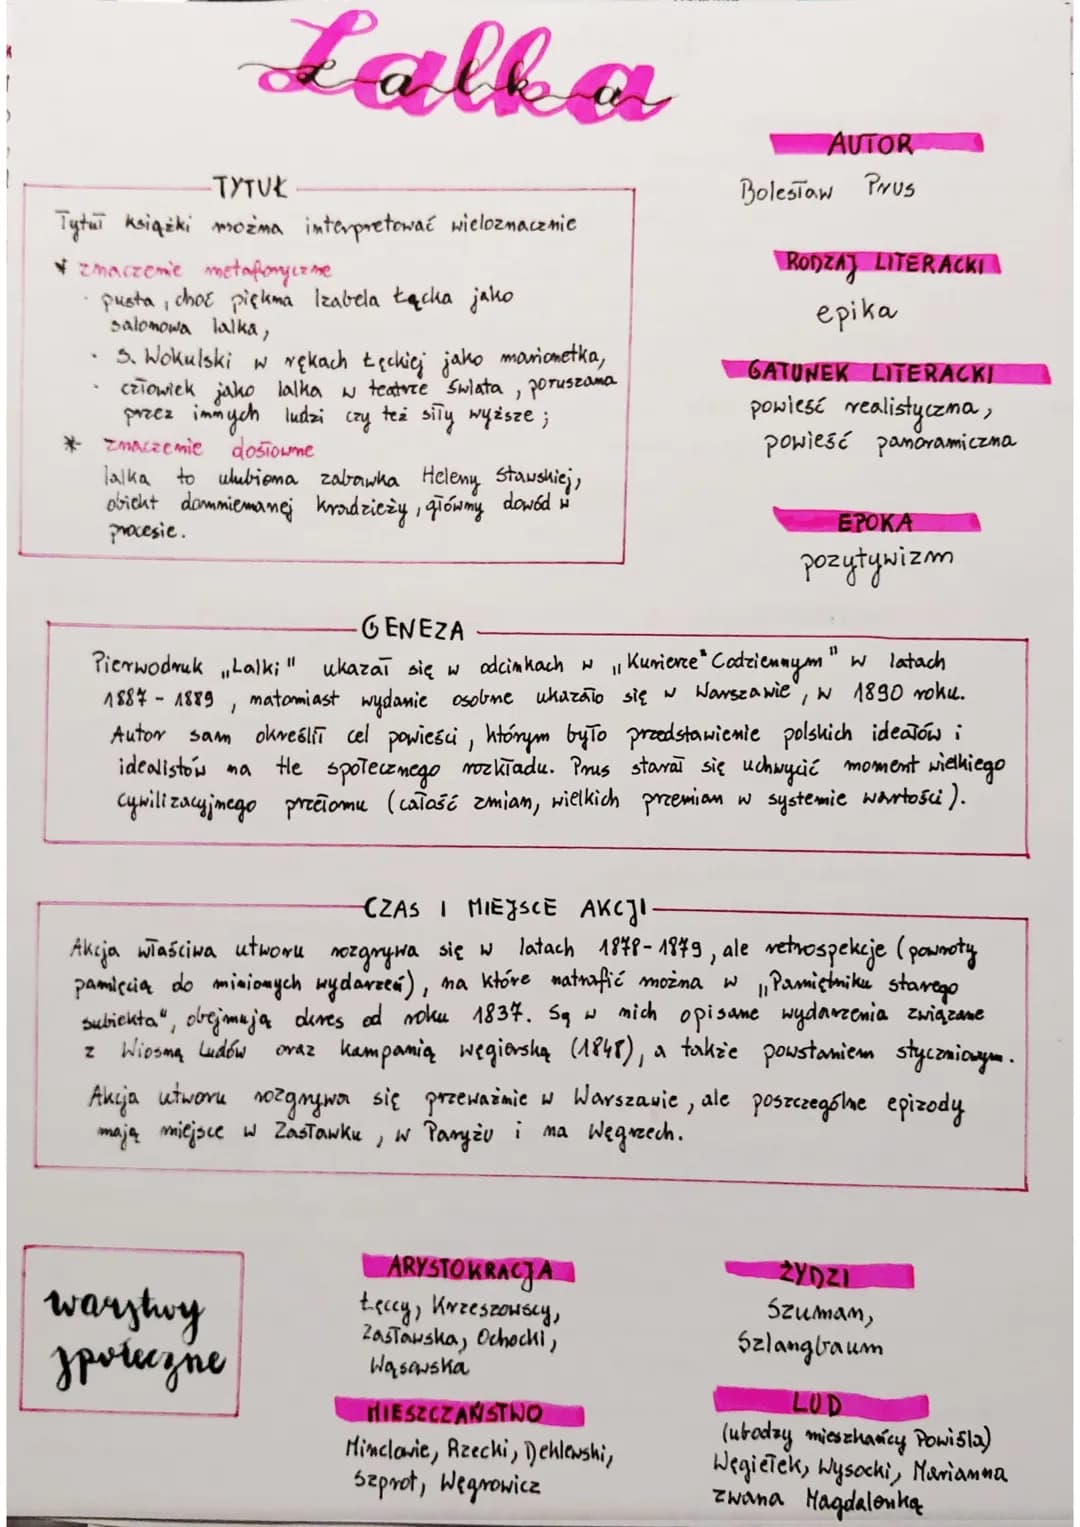 Lalka
TYTUŁ
Tytuł książki można interpretować wieloznacznie
* znaczenie metaforyczne
· pusta, choć piękna Izabela Łęcka jako
salonowa lalka,
· S. Wokulski w rękach Łęckiej jako marionetka,
· człowiek jako lalka w teatrze świata, poruszana
przez innych ludzi czy też siły wyższe;
* znaczenie dosłowne
lalka to ulubiona zabawka Heleny Stawskiej,
obiekt domniemanej kradzieży, główny dowód w
procesie.
AUTOR
Bolesław Prus
RODZAJ LITERACKI
epika
GATUNEK LITERACKI
powieść realistyczna,
powieść panoramiczna
EPOKA
pozytywizm
GENEZA
Pierwodruk „Lalki" ukazał się w odcinkach w „Kurierze Codziennym" w latach
1887 - 1889, natomiast wydanie osobne ukazało się w Warszawie, w 1890 roku.
Autor sam określił cel powieści, którym było przedstawienie polskich ideałów i
idealistów na tle społecznego rozkładu. Prus starał się uchwycić moment wielkiego
cywilizacyjnego przełomu (całość zmian, wielkich przemian w systemie wartości).
CZAS I MIEJSCE AKCJI
Akcja właściwa utworu rozgrywa się w latach 1878-1879, ale retrospekcje (powroty
pamięcią do minionych wydarzeń), na które natrafić można w „Pamiętniku starego
subiekta", obejmują okres od roku 1837. Są w nich opisane wydarzenia związane
z Wiosną Ludów oraz kampanią węgierską (1848), a także powstaniem styczniowym.
Akcja utworu rozgrywa się przeważnie w Warszawie, ale poszczególne epizody
mają miejsce w Zasławku, w Paryżu i na Węgrzech.
warstwy
społeczne
ARYSTOKRACJA
Łęccy, Krzeszowscy,
Zasławska, Ochocki,
Wąsowska
ŻYDZI
Szuman,
Szlangbaum
MIESZCZAŃSTWO
Minclowie, Rzecki, Deklewski,
Szprot, Węgrowicz
LUD
(ubodzy mieszkańcy Powiśla)
Węgiełek, Wysocki, Marianna
zwana Magdalenką